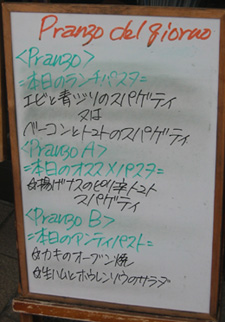 Pranzo del giorno
<Pranzo>
=本日のランチパスタ=
エビと青ジソのスパゲティ
又は
ベーコンとトマトのスパゲティ
<Pranzo A>
=本日のオススメパスタ=
☆揚げナスのピリ辛トマト
スパゲティ
<Pranzo B>
=本日のアンティパスト=
☆カキのオーブン焼
☆生ハムとホウレンソウのサラダ